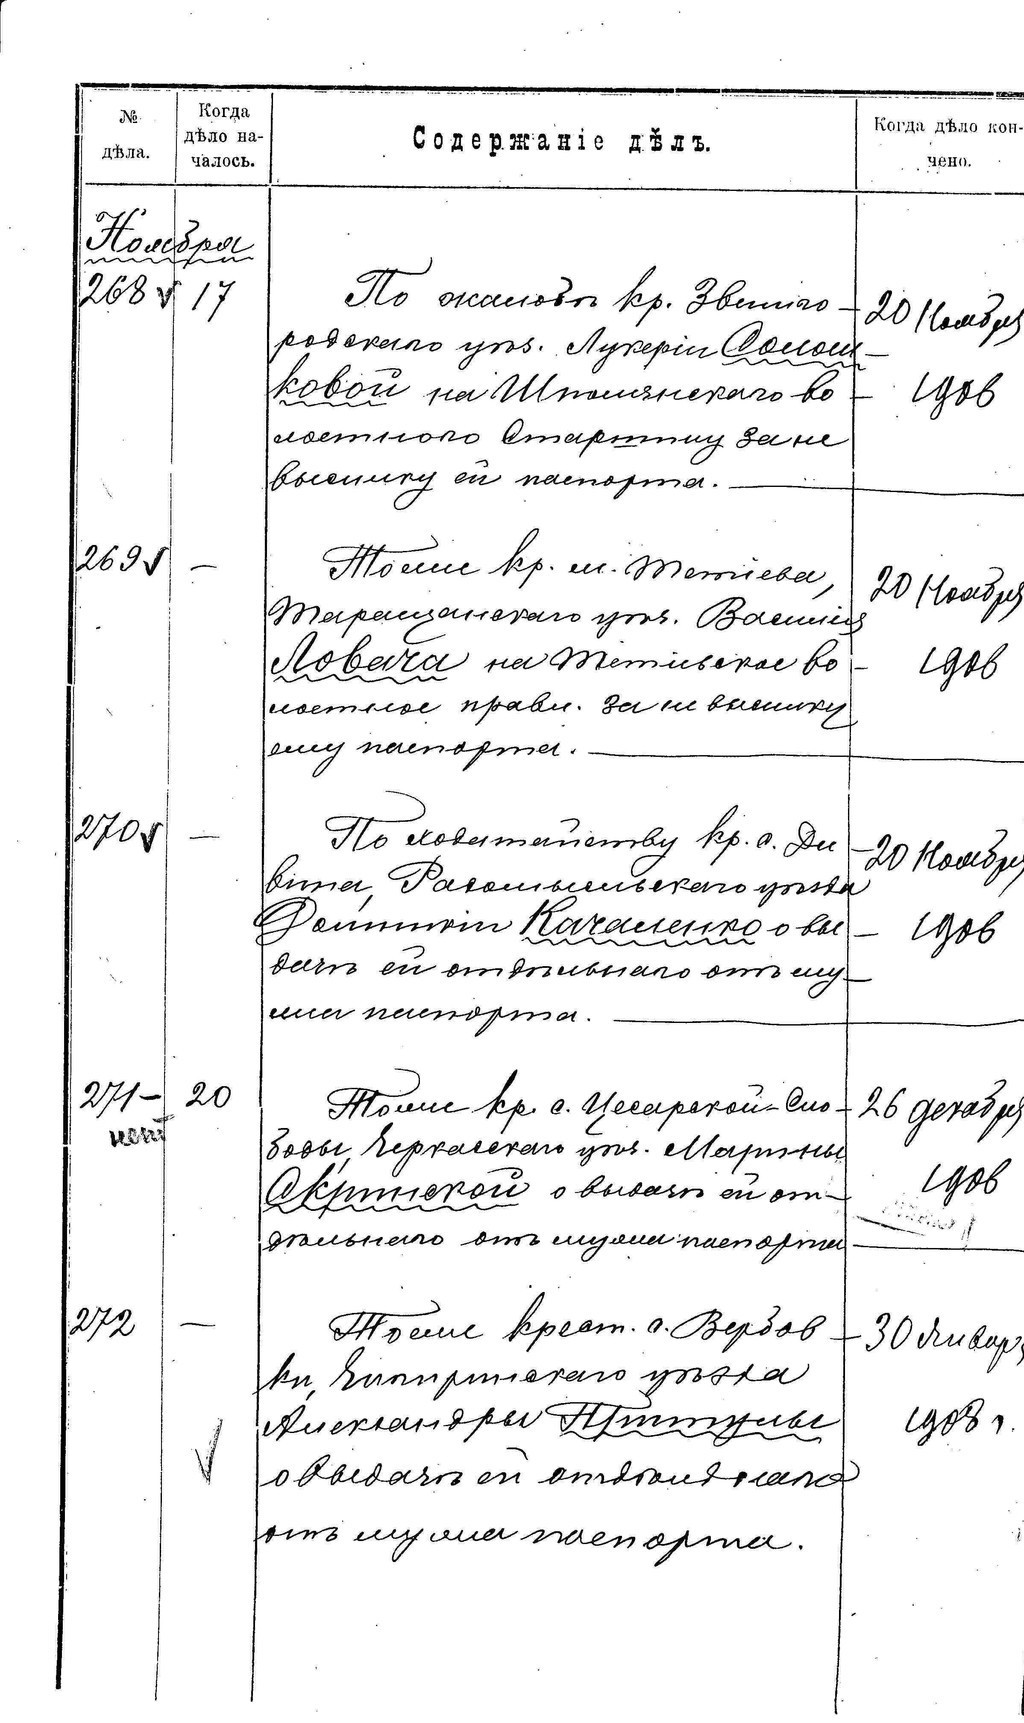 № дѣла.
Когда дѣло началось.
Содержаніе дѣлъ.
Когда дѣло кончено.
Ноября
268 17
По жалобѣ кр. Звениго-
родскаго уѣз. Лукеріи Солош-
ковой на Шполянскаго во-
лостного Старшину за не
высылку ей паспорта.
20 Ноября
1906
269 —
Тоже кр. м. Тетіева,
Таращанскаго уѣз. Василія
Ловача на Тетіевское во-
лостное правл. за не высылку
ему паспорта.
20 Ноября
1906
270 —
По ходатайству кр. с. Ди-
вина, Радомысльскаго уѣзда
Качаленко о вы-
дачѣ ей отдѣльнаго отъ му-
жа паспорта.
20 Ноября
1906
271 — 20
нет
Тоже кр. с. Цесарской-Сло-
боды, Черкасскаго уѣз. Марины
Скринской о выдачѣ ей от-
дѣльнаго отъ мужа паспорта
26 декабря
1906
272 —
Тоже крест. с. Вербов-
ки, Чигиринскаго уѣзда
Александры Притулы
о выдачѣ ей отдѣльнаго
отъ мужа паспорта.
30 Января
1908 г.